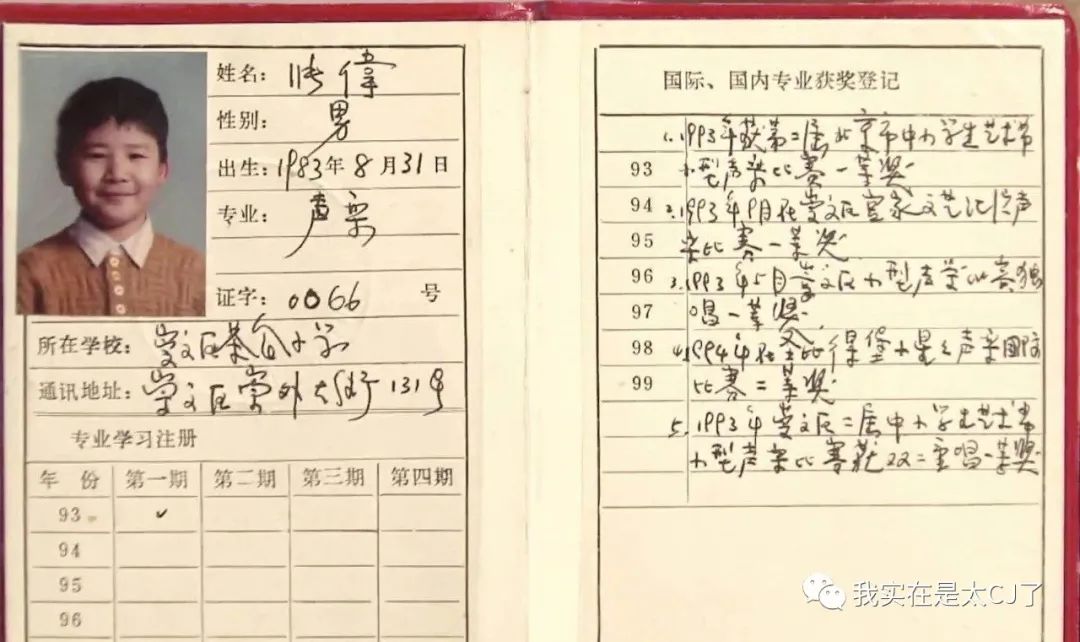 姓名：张偉
性别：男
出生：1983年8月31日
专业：声乐
证字：0066号
所在学校：崇文区茶食小学
通讯地址：崇文区崇外大街131号
专业学习注册
年份 第一期 第二期 第三期 第四期
93 ✓
94
95
96
国际、国内专业获奖登记
1.1993年获第二届北京市中小学生艺术节
93 小型声乐比赛一等奖
94 2.1993年9月在崇文区宫家文艺汇演声
95 乐比赛一等奖
96 3.1993年5月崇文区小型声乐比赛独
97 唱一等奖
98 4.1994年在圣彼得堡小星星声乐国际
99 比赛二等奖
5.1993年崇文区二届中小学生艺术节
小型声乐比赛获双二重唱一等奖
我实在是太CJ了